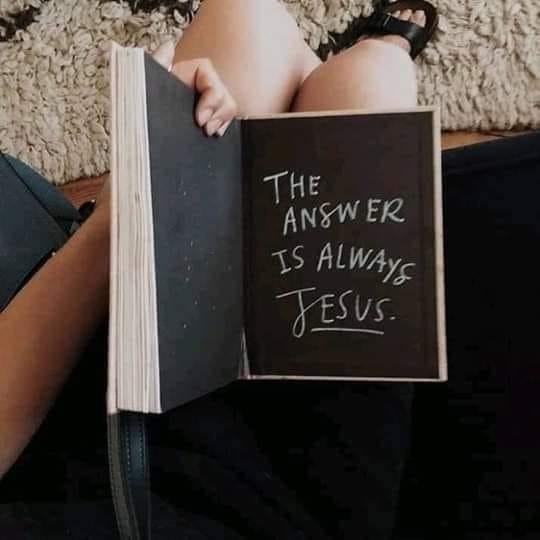 THE
ANSWER
IS ALWAYS
JESUS.